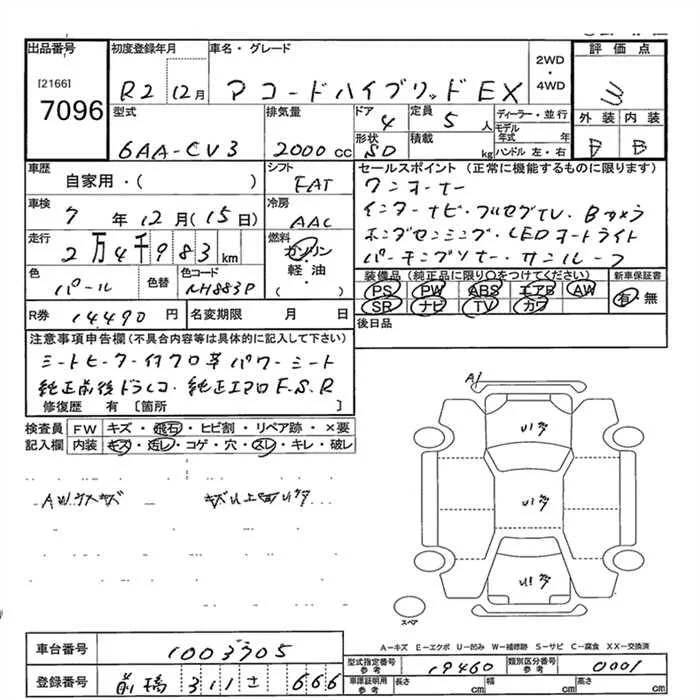 出品番号 初度登録年月 車名・グレード 2WD ・ 4WD 評価点
[2166]
7096 R2 12月 アコードハイブリッドEX
型式 排気量 ドア 4 定員 5人 ディーラー・並行 外装 内装
6AA-CV3 2000cc 形状 SD 積載 kg モデル年式 年 ハンドル左・右 B B
車歴 シフト セールスポイント(正常に機能するものに限ります)
自家用・( ) FAT ワンオーナー
車検 7年12月(15日) 冷房 AAC インターナビ・フルセグTV・Bカメラ
走行 2万4千983km 燃料 ガソリン・軽油・( ) ホンダセンシング・LEDオートライト
パーキングソナー・サンルーフ
色 パール 色替 色コード NH883P 装備品(純正品に限り○をつけてください) 新車保証書
PS PW ABS エアB AW 有・無
SR ナビ TV カワ
R券 14490円 名変期限 月 日 後日品
注意事項申告欄(不具合内容等は具体的に記入して下さい)
シートヒーター付クロ革パワーシート
純正前後ドラレコ・純正エアロF.S.R
修復歴 有[箇所 ]
検査員記入欄 FW キズ・飛石・ヒビ割・リペア跡・×要
内装 キズ・汚レ・コゲ・穴・スレ・キレ・破レ
A1
AWウスキズ
スペア
A-キズ E-エクボ U-凹み W-補修跡 S-サビ C-腐食 XX-交換済
車台番号 1003305
型式指定番号 参考 19460 類別区分番号 参考 0001
登録番号 前橋 311 さ 666
車庫証明用 参考 長さ cm 幅 cm 高さ cm